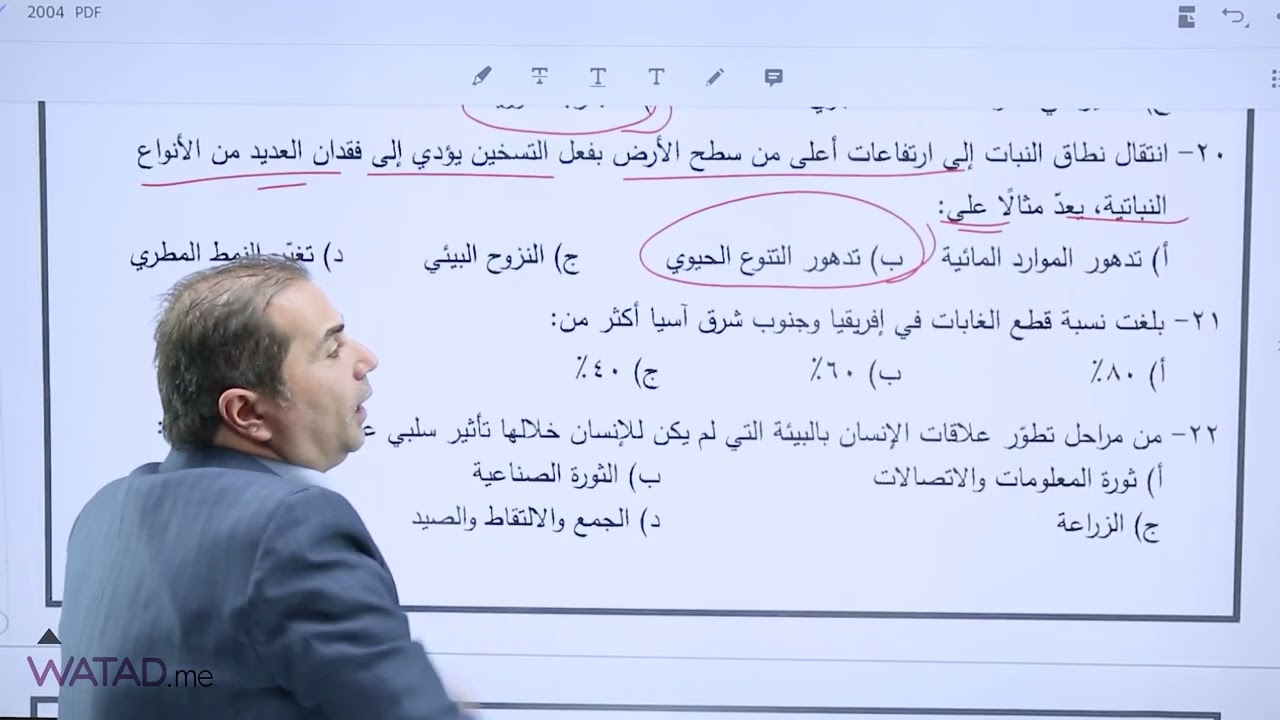 2004 PDF
٢٠- انتقال نطاق النبات إلى ارتفاعات أعلى من سطح الأرض بفعل التسخين يؤدي إلى فقدان العديد من الأنواع
النباتية، يعدّ مثالًا على:
أ) تدهور الموارد المائية ب) تدهور التنوع الحيوي ج) النزوح البيئي د) تغيّر النمط المطري
٢١- بلغت نسبة قطع الغابات في إفريقيا وجنوب شرق آسيا أكثر من:
أ) ٨٠٪ ب) ٦٠٪ ج) ٤٠٪
٢٢- من مراحل تطوّر علاقات الإنسان بالبيئة التي لم يكن للإنسان خلالها تأثير سلبي
أ) ثورة المعلومات والاتصالات ب) الثورة الصناعية
ج) الزراعة د) الجمع والالتقاط والصيد
WATAD.me